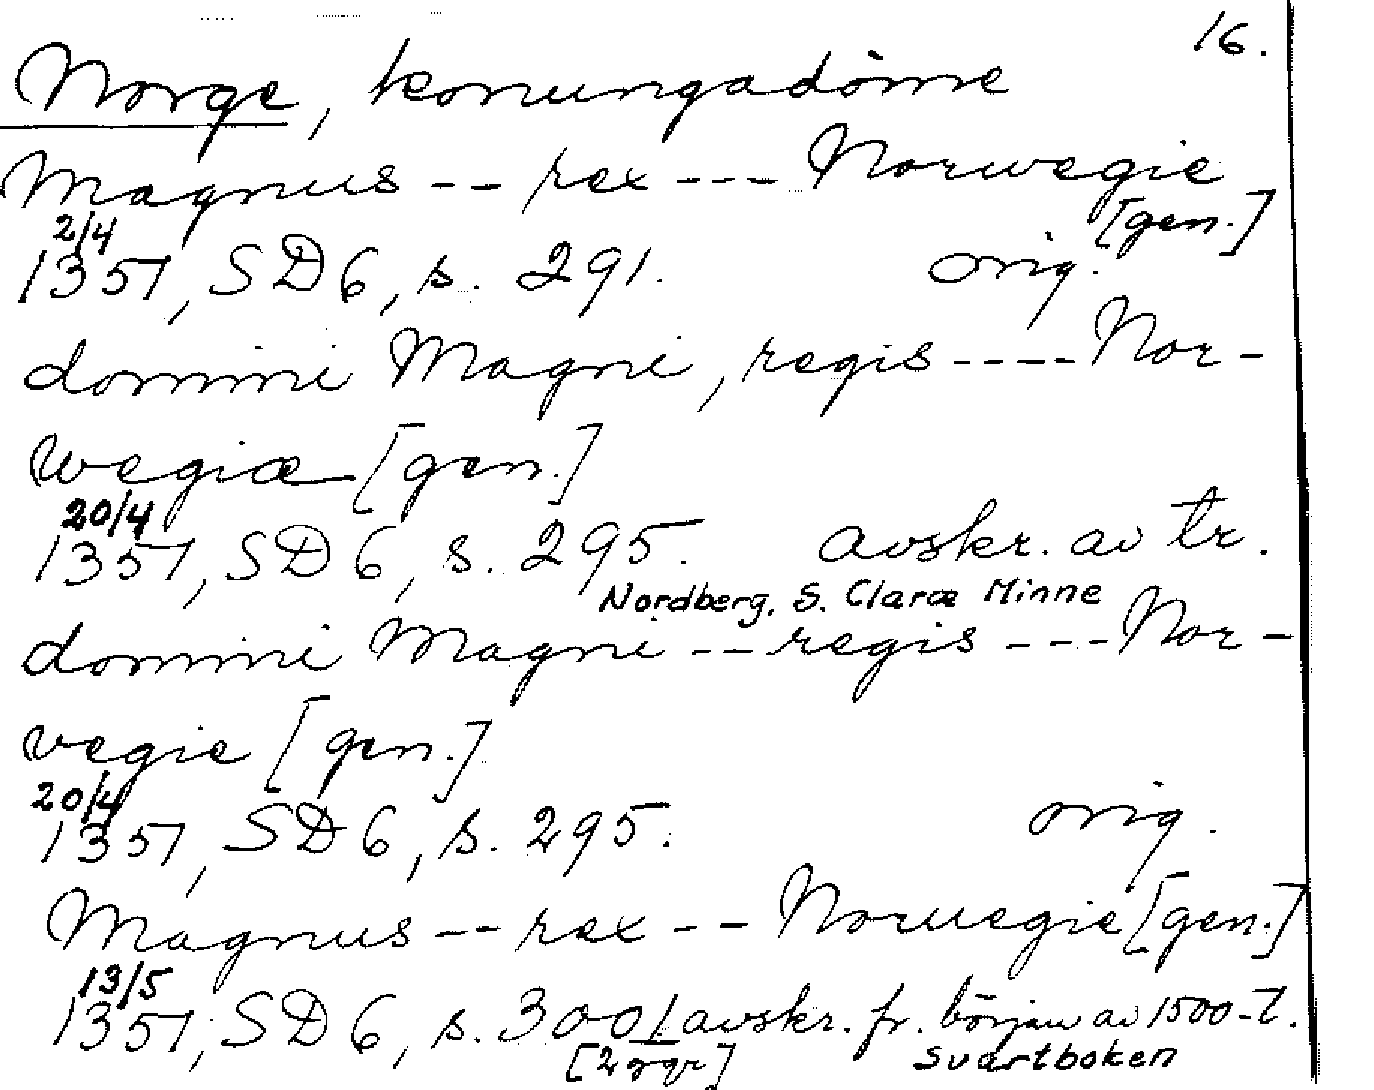 16.
Norge, konungadöme
Magnus -- rex --- Norwegie
[gen.]
2/4
1351, SD 6, s. 291. orig.
domini Magni, regis ---- Nor-
wegiæ [gen.]
20/4
1351, SD 6, s. 295. avskr. av tr.
Nordberg, S. Claræ Minne
domini Magni -- regis --- Nor-
vegie [gen.]
20/4
1351, SD 6, s. 295. orig.
Magnus -- rex -- Noruegie [gen.]
13/5
1351, SD 6, s. 300 avskr. fr. början av 1500-t.
[2 ggr] svartboken